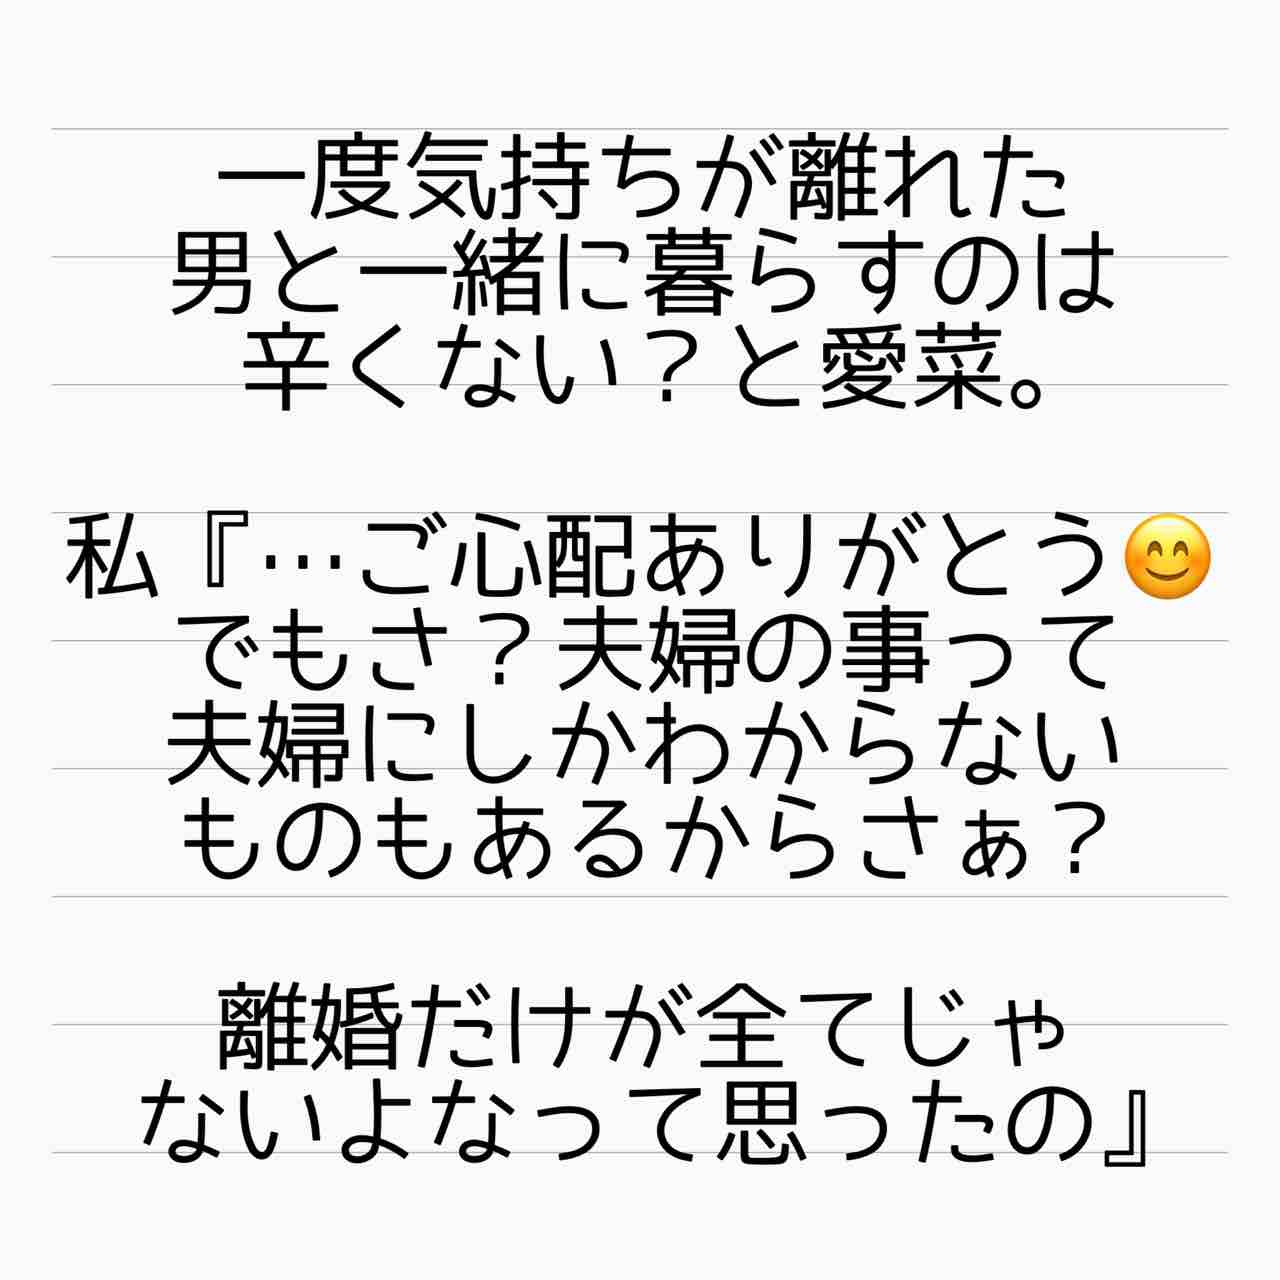 一度気持ちが離れた
男と一緒に暮らすのは
辛くない？と愛菜。
私『…ご心配ありがとう😊
でもさ？夫婦の事って
夫婦にしかわからない
ものもあるからさぁ？
離婚だけが全てじゃ
ないよなって思ったの』